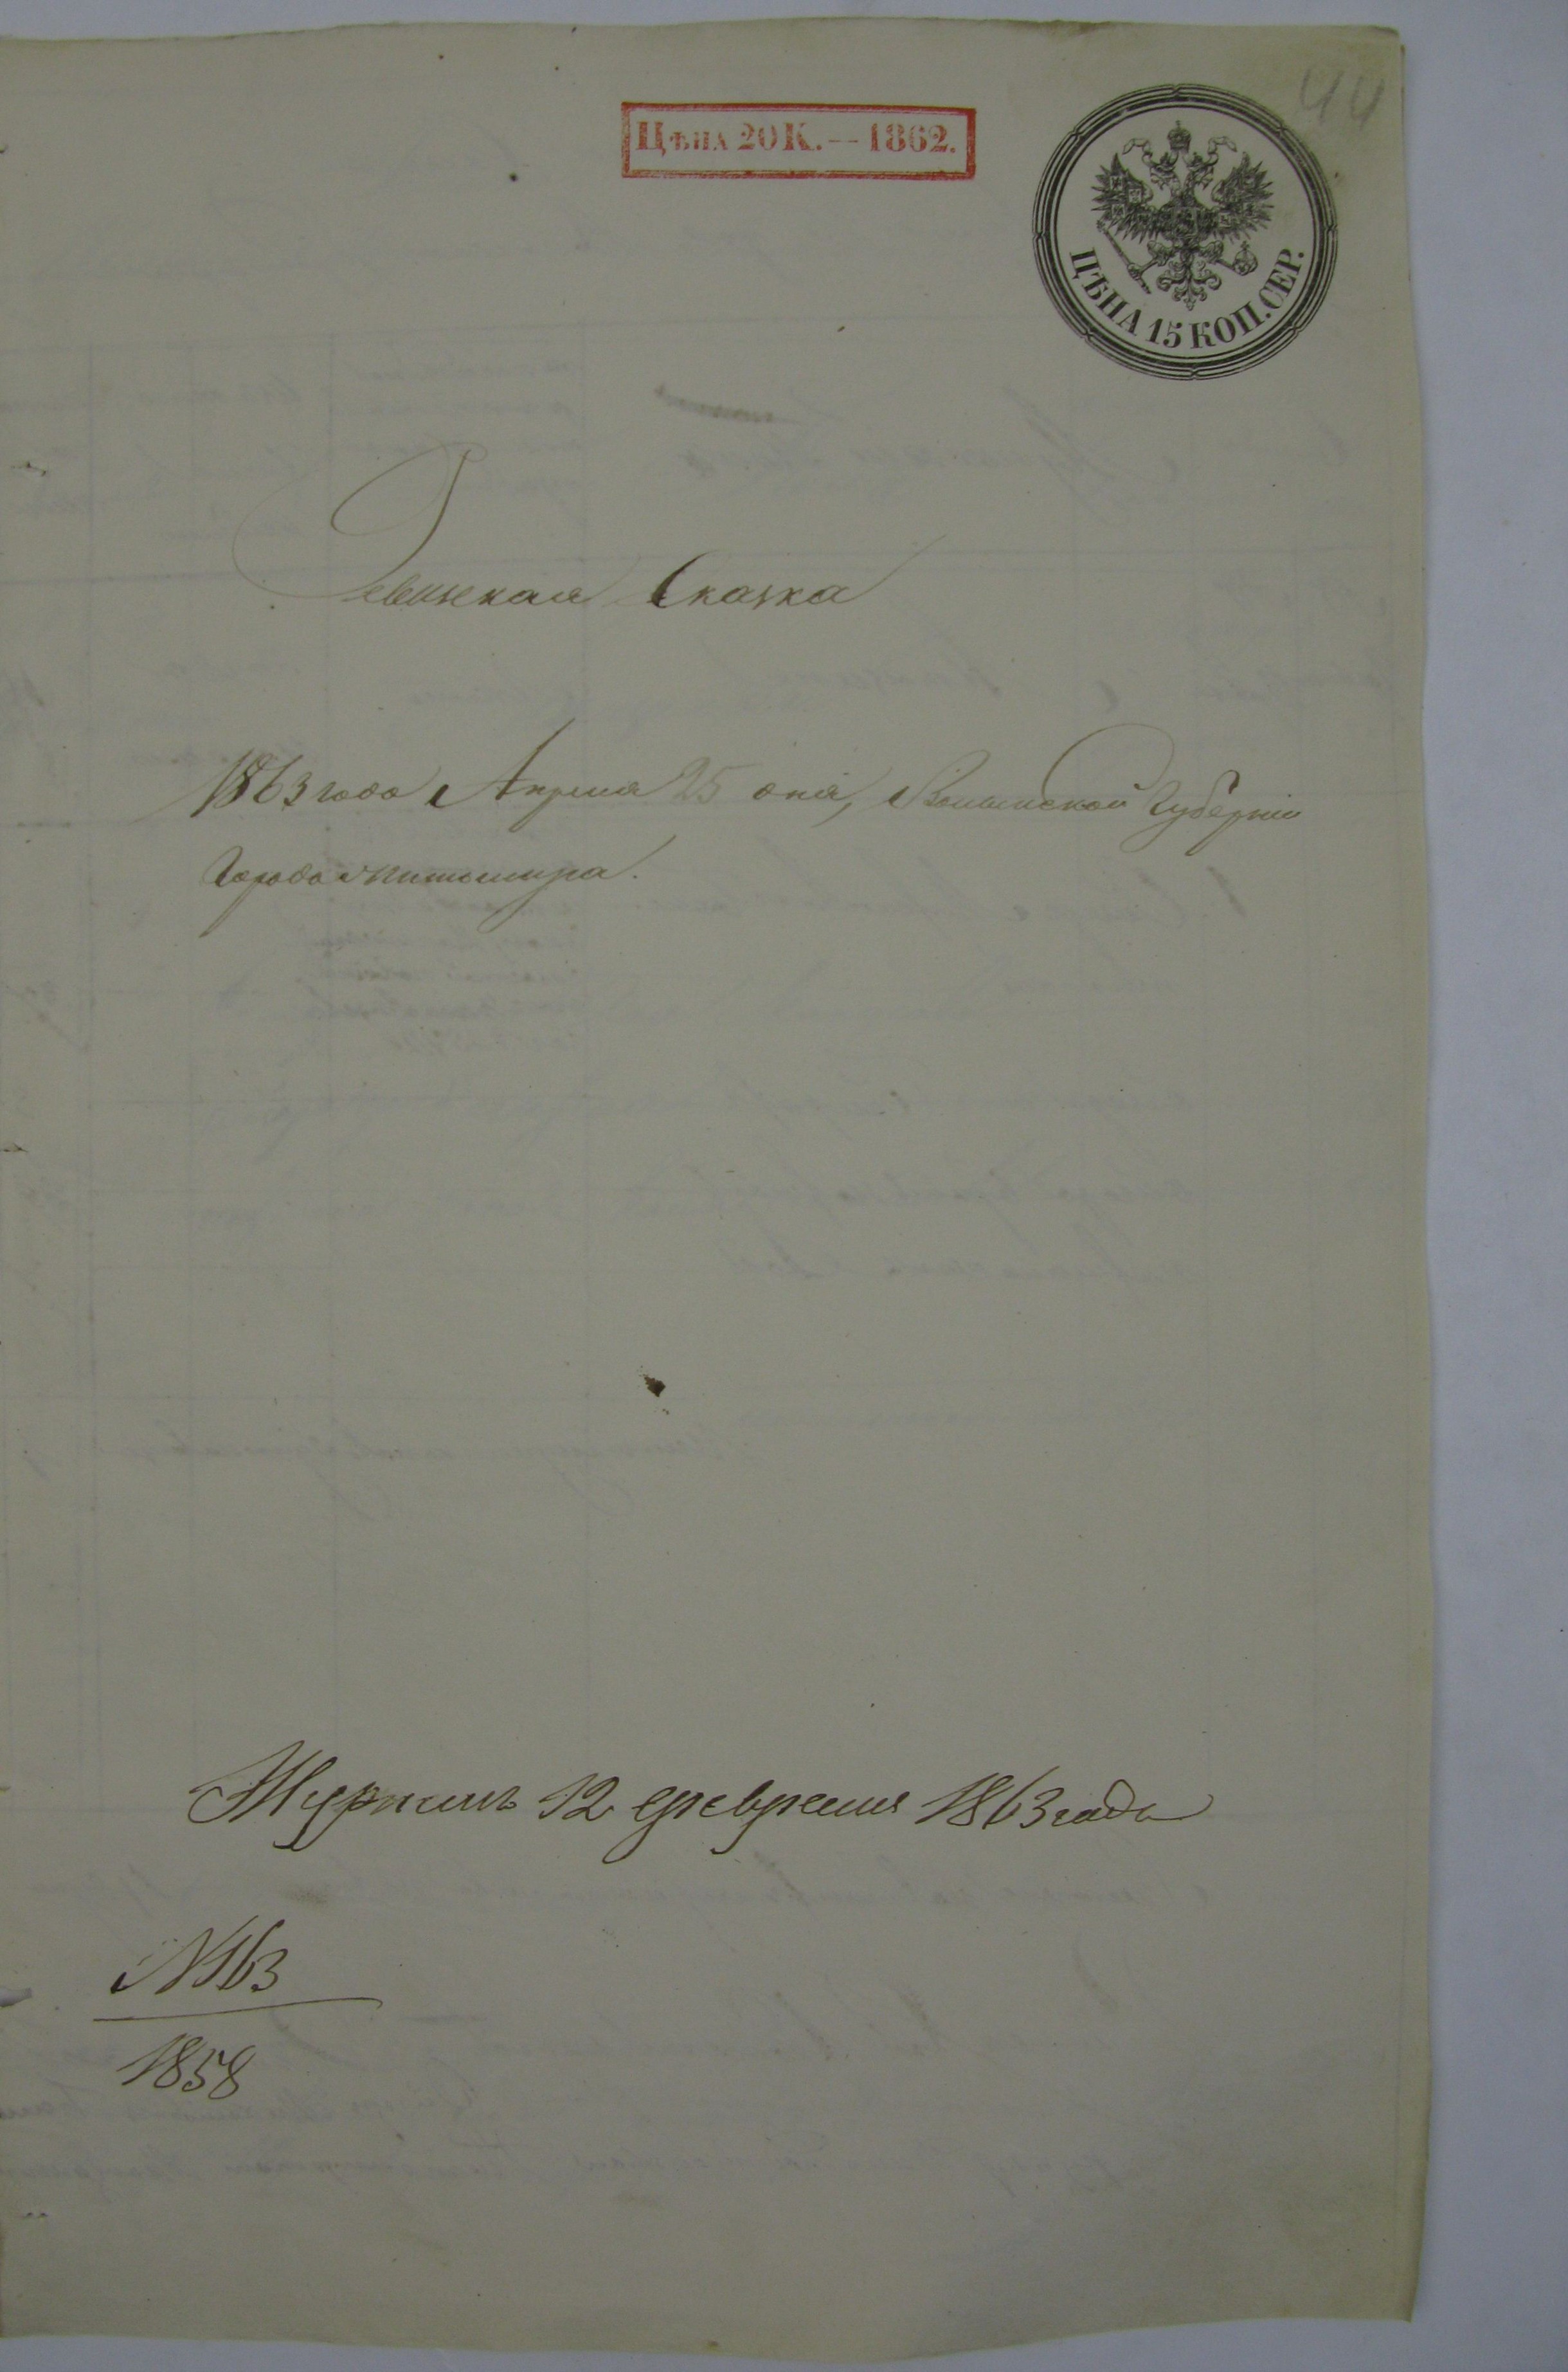 44
Цѣна 20 К. -- 1862.
ЦѢНА 15 КОП. СЕР.
Ревизская Сказка
1863 года Апреля 25 дня, Волынской Губерніи
Города Житомира.
Журналъ 12 февраля 1863 года
№ 163
1858